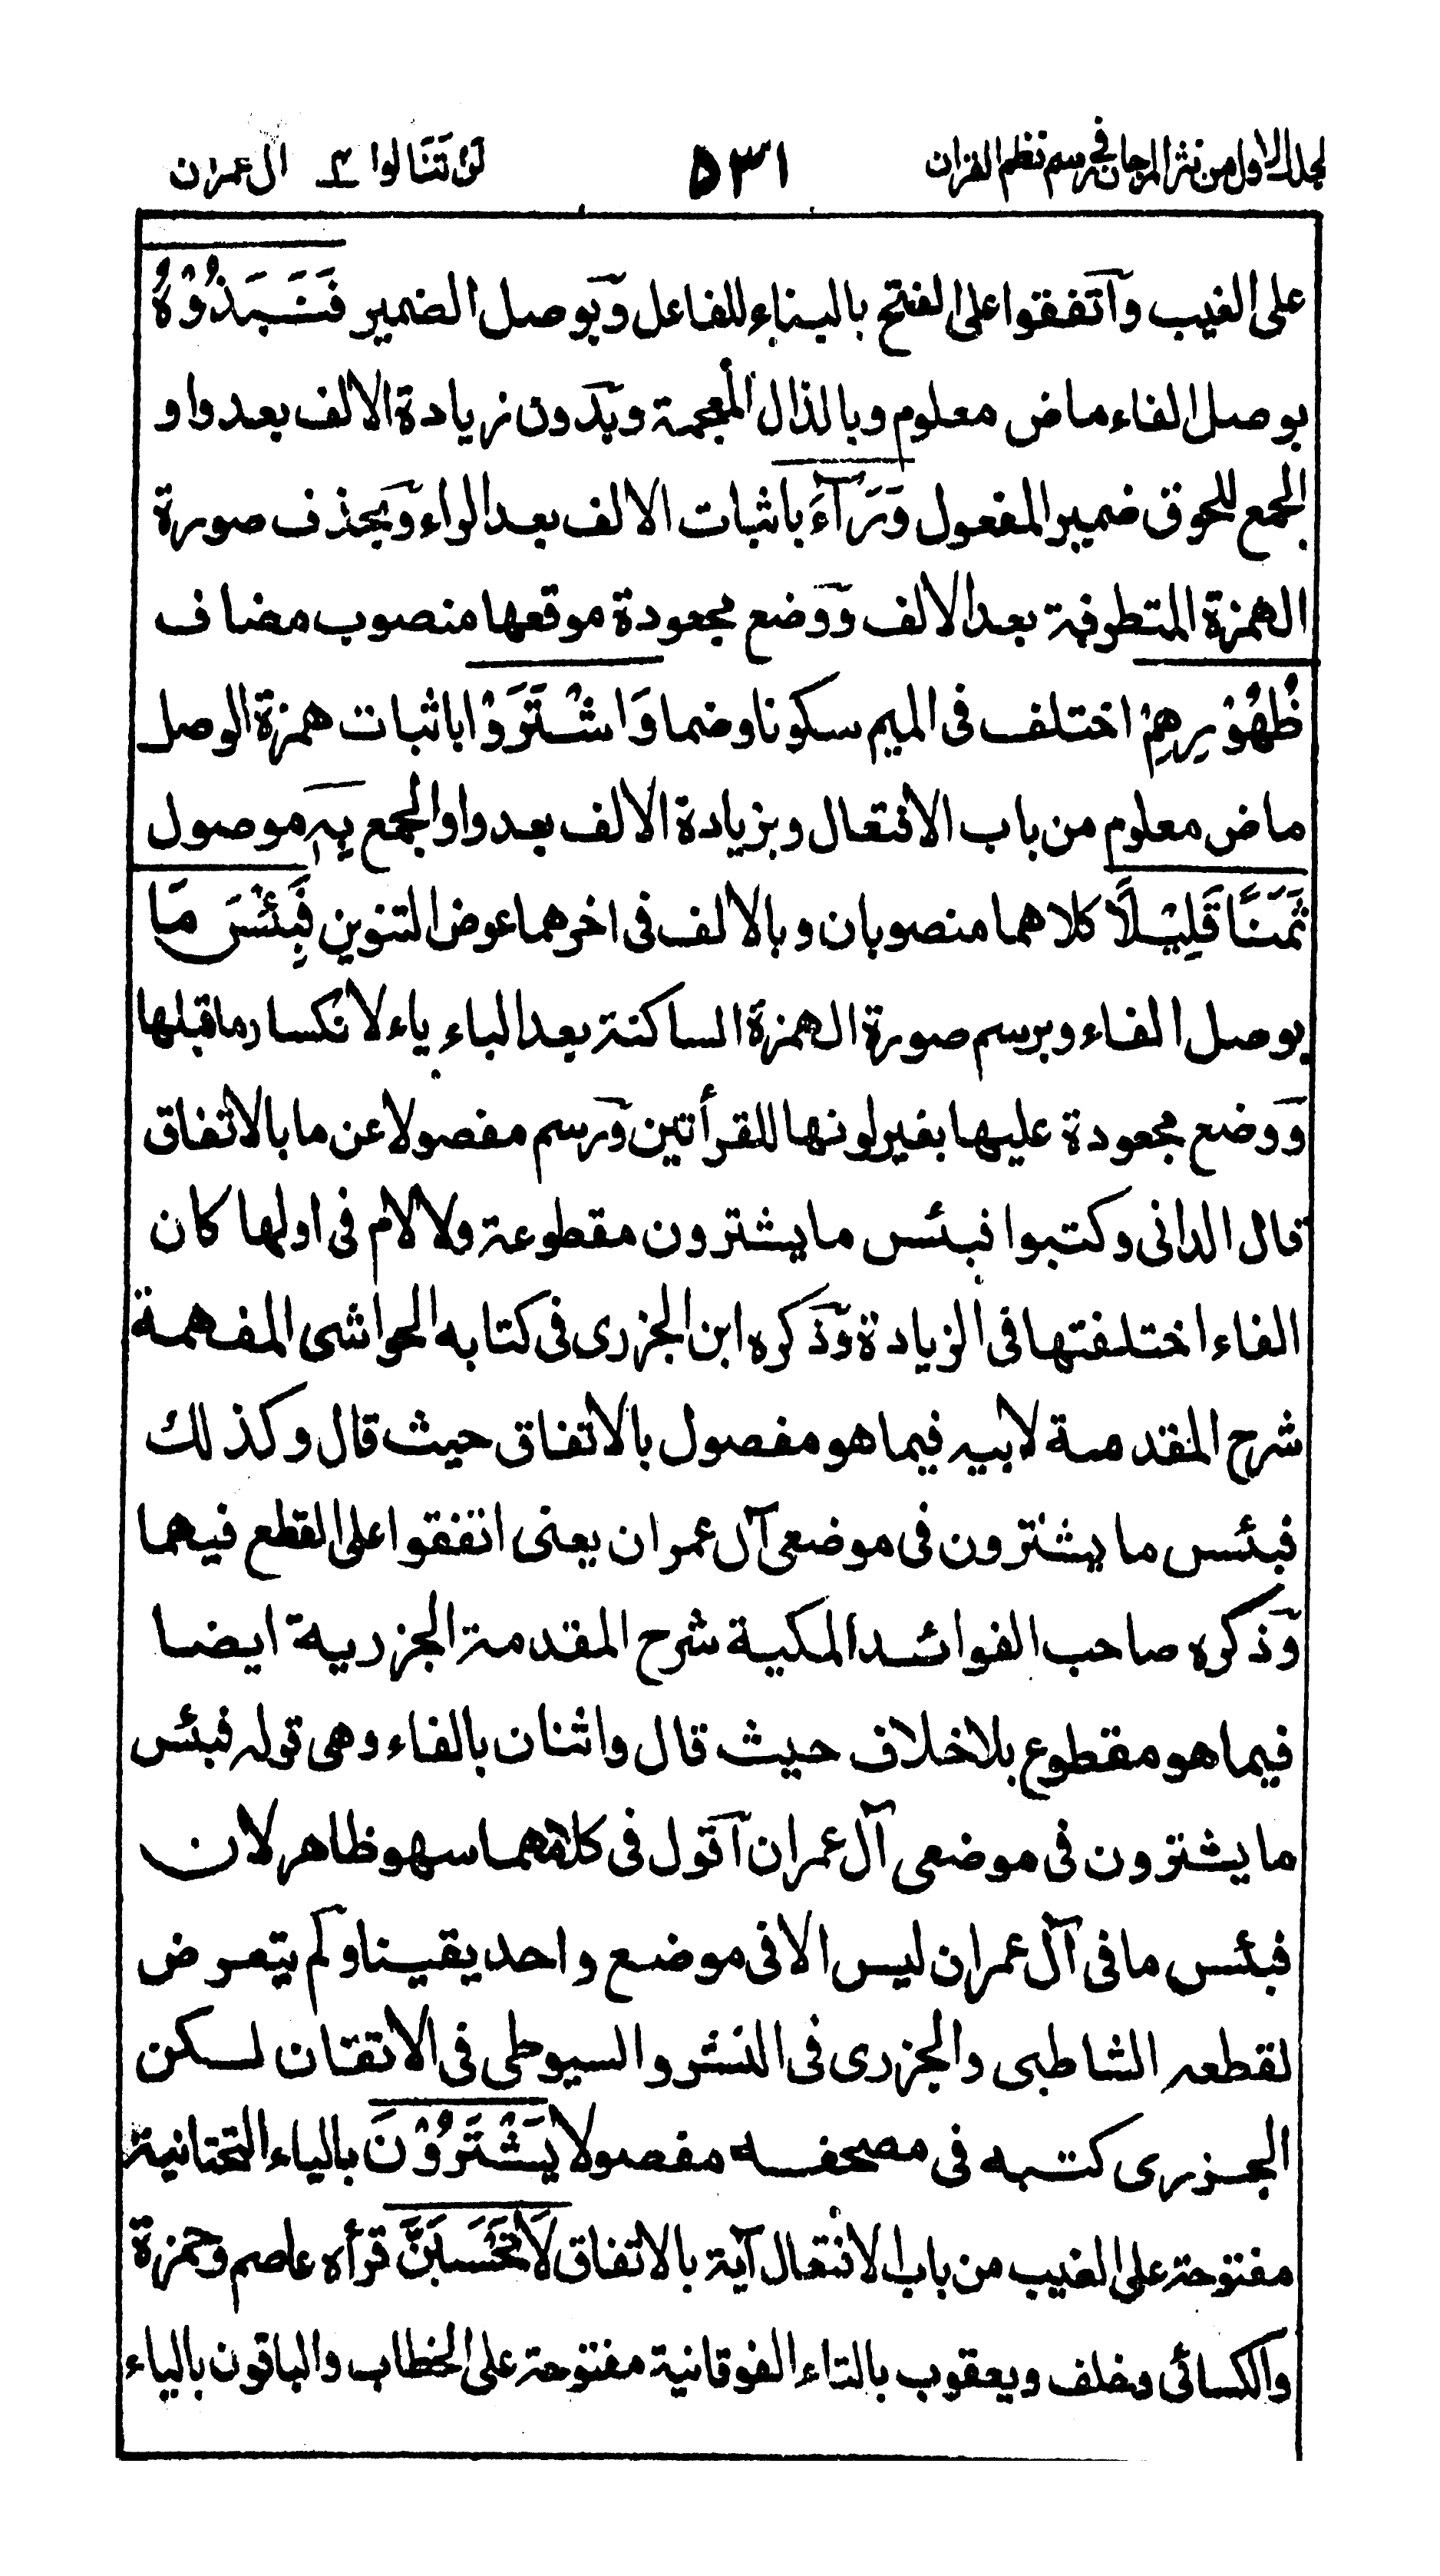 لجلد الاول من نثر المرجان فى رسم نظم القران ٥٣١ لن تنالوا ٤ ال عمران
على الغيب وآتفقوا على الفتح بالبناء للفاعل وبوصل الضمير فَنَبَذُوْهُ
بوصل الفاء ماض معلوم وبالذال المعجمة وبدون زيادة الالف بعد واو
الجمع للحوق ضمير المفعول وَرَآءَ باثبات الالف بعد الراء وبحذف صورة
الهمزة المتطرفة بعد الالف ووضع مجعودة موقعها منصوب مضاف
ظُهُوْرِهِمْ اختلف فى الميم سكونا وضما وَاشْتَرَوْا باثبات همزة الوصل
ماض معلوم من باب الافتعال وبزيادة الالف بعد واو الجمع بِهٖ موصول
ثَمَنًا قَلِيْلًا كلاهما منصوبان وبالالف فى اخرهما عوض التنوين فَبِئْسَ مَا
بوصل الفاء وبرسم صورة الهمزة الساكنة بعد الباء ياء لانكسار ما قبلها
ووضع مجعودة عليها بغير لونها للقرأتين ورسم مفصولا عن ما بالاتفاق
قال الدانى وكتبوا فبئس ما يشترون مقطوعة ولا لام فى اولها كان
الفاء اختلفتها فى الزيادة وذكره ابن الجزرى فى كتابه الحواشى المفهمة
شرح المقدمة لابيه فيما هو مفصول بالاتفاق حيث قال وكذلك
فبئس ما يشترون فى موضعى آل عمران يعنى اتفقوا على القطع فيهما
وذكره صاحب الفوائد المكية شرح المقدمة الجزرية ايضا
فيما هو مقطوع بلا خلاف حيث قال واثنان بالفاء وهى قوله فبئس
ما يشترون فى موضعى آل عمران آقول فى كلامهما سهو ظاهر لان
فبئس ما فى آل عمران ليس الا فى موضع واحد يقينا ولم يتعرض
لقطعه الشاطبى والجزرى فى النشر والسيوطى فى الاتقان لكن
الجزرى كتبه فى مصحفه مفصولا يَشْتَرُوْنَ بالياء التحتانية
مفتوحة على الغيب من باب الافتعال آية بالاتفاق لَا تَحْسَبَنَّ قرأه عاصم وحمزة
والكسائى وخلف ويعقوب بالتاء الفوقانية مفتوحة على الخطاب والباقون بالياء